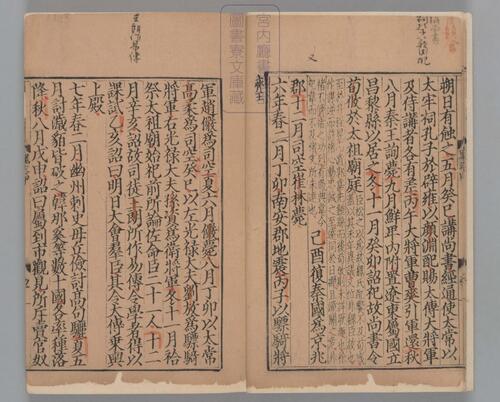 朔日有蝕之五月癸巳講尚書經通使太常以
太牢祠孔子於辟雍以顏淵配賜太傅大將軍
及侍講者各有差丙午大將軍曹爽引軍還秋
八月秦王詢薨九月鮮卑內附置遼東屬國立
昌黎縣以居之冬十一月癸卯詔祀故尚書令
荀攸於太祖廟庭
己酉復秦國為京兆
郡十二月司空崔林薨
六年春二月丁卯南安郡地震丙子以驃騎將
圖書寮文庫藏
軍趙儼為司空夏六月儼薨八月丁卯以太常
高柔為司空癸巳以左光祿大夫劉放為驃騎
將軍右光祿大夫孫資為衞將軍冬十一月祫
祭太祖廟始祀前所論佐命臣二十一人十二
月辛亥詔故司徒王朗所作易傳令學者得以
課試乙亥詔曰明日大會羣臣其令太傅乘輿
上殿
七年春二月幽州刺史毌丘儉討高句驪夏五
月討濊貊皆破之韓那奚等數十國各率種落
降秋八月戊申詔曰屬到市觀見所斥賣官奴